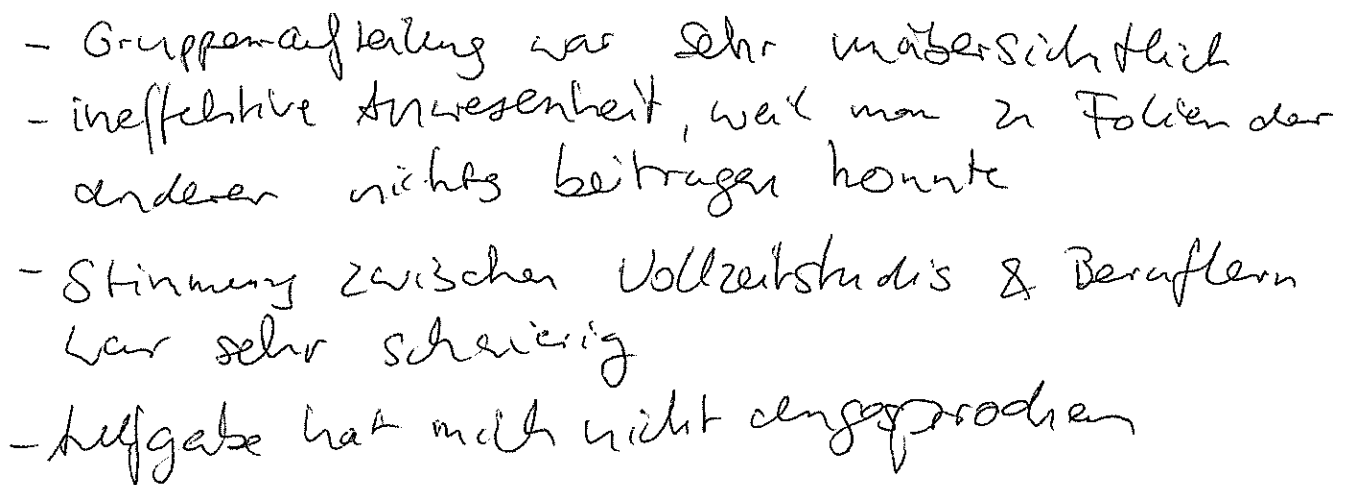 - Gruppenaufteilung war sehr unübersichtlich
- ineffektive Anwesenheit, weil man zu Folien der
anderen nichts beitragen konnte
- Stimmung zwischen Vollzeitstudis & Beruflern
war sehr schwierig
- Aufgabe hat mich nicht angesprochen